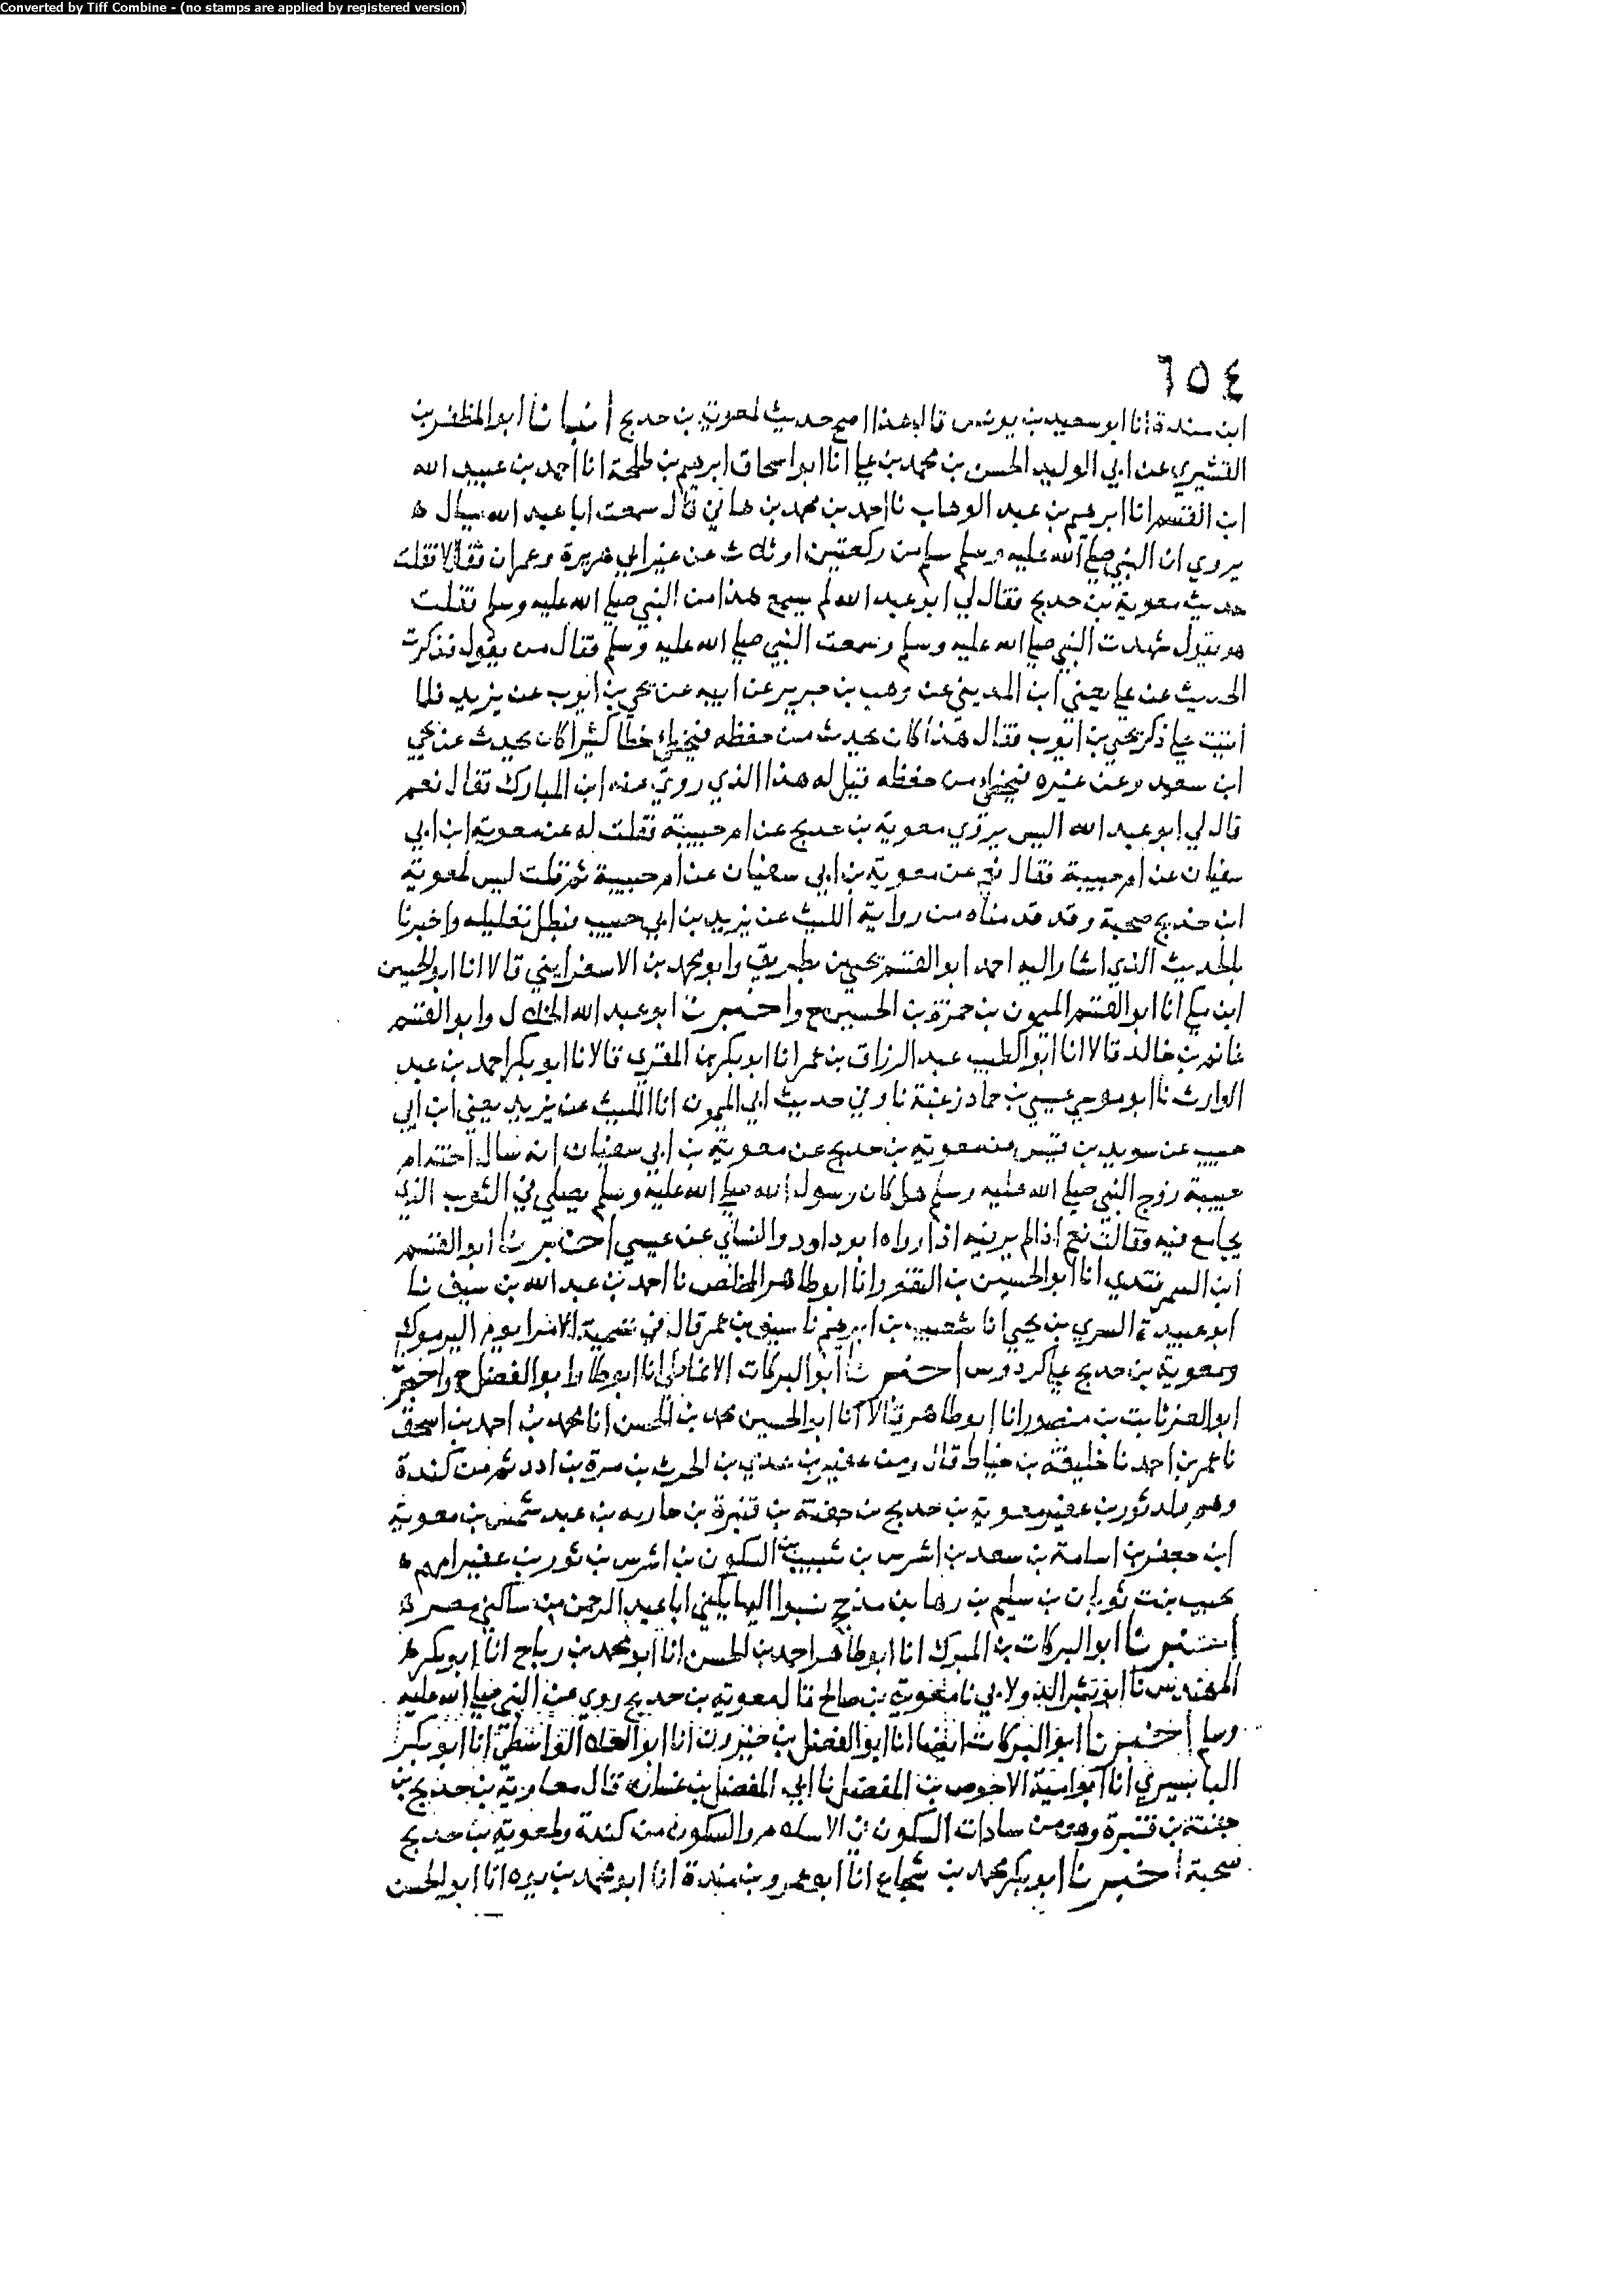 Converted by Tiff Combine - (no stamps are applied by registered version)
٦٥٤
ابن مندة انا ابو سعيد بن يونس قال هذا اصح حديث لمعوية بن حديج أنبانا ابو المظفر بن
القشيري عن ابي الوليد الحسن بن محمد بن علي انا ابو اسحاق ابرهيم بن طلحة انا احمد بن عبيد الله
ابن القسم انا ابرهيم بن عبد الوهاب نا احمد بن محمد بن هاني قال سمعت ابا عبد الله يسال ه
يروي ان النبي صلي الله عليه وسلم سلم من ركعتين او ثلاث عن غير ابي هريرة وعمران فقالا فقلت
حديث معوية بن حديج فقال لي ابو عبد الله لم يسمع هذا من النبي صلي الله عليه وسلم فقلت
هو يقول شهدت النبي صلي الله عليه وسلم وسمعت النبي صلي الله عليه وسلم فقال من يقول فذكرت
الحديث عن علي يعني ابن المديني عن وهب بن جرير عن ابيه عن يحيي بن ايوب عن يزيد فلما
أتيت علي ذكر يحيي بن ايوب فقال هذا كان يحدث من حفظه فيخطي خطا كثيرا كان يحدث عن يحيي
ابن سعيد وعن غيره فيخطي من حفظه قيل له هذا الذي روي عنه ابن المبارك فقال نعم
قال لي ابو عبد الله اليس يروي معوية بن حديج عن ام حبيبة فقلت له عن معوية ابن ابي
سفيان عن ام حبيبة فقال نعم عن معوية بن ابي سفيان عن ام حبيبة ثم قلت ليس لمعوية
ابن حديج صحبة وقد قدمناه من رواية الليث عن يزيد بن ابي حبيب فبطل تعليله واخبرنا
بالحديث الذي اشار اليه احمد ابو القسم يحيي بن بطريق وابو محمد بن الاسفرايني قالا انا ابو الحسين
ابن مكي انا ابو القسم الميمون بن حمزة بن الحسين ح واخبرنا ابو عبد الله الخلال وابو القسم
غانم بن خالد قالا انا ابو الطيب عبد الرزاق بن عمر انا ابو بكر بن المقري قالا نا ابو بكر احمد بن عبد
الوارث نا ابو موسي عيسي بن حماد زغبة نا وفي حديث ابي الميمون انا الليث عن يزيد يعني ابن ابي
حبيب عن سويد بن قيس عن معوية بن حديج عن معوية بن ابي سفيان انه سال اخته ام
حبيبة زوج النبي صلي الله عليه وسلم هل كان رسول الله صلي الله عليه وسلم يصلي في الثوب الذي
يجامع فيه فقالت نعم اذا لم ير فيه اذا رواه ابو داود والنساي عن عيسي اخبرنا ابو القسم
ابن السمرقندي انا ابو الحسين بن النقور انا ابو طاهر المخلص نا احمد بن عبد الله بن سيف نا
ابو عبيدة السري بن يحيي انا شعيب بن ابرهيم نا سيف بن عمر قال في تسمية الامرا يوم اليرموك
ومعوية بن حديج علي كردوس اخبرنا ابو البركات الانماطي انا ابو طاهر وابو الفضل ح واخبرنا
ابو العز ثابت بن منصور انا ابو طاهر قالا انا ابو الحسين محمد بن الحسن انا محمد بن احمد بن اسحق
نا عمر بن احمد نا خليفة بن خياط قال ومن عفير بن عدي بن الحرث بن مرة بن ادد ثم من كندة
وهم ولد ثور بن عفير معوية بن حديج بن جفنة بن قنبرة بن حارثه بن عبد شمس بن معوية
ابن جعفر بن اسامة بن سعد بن اشرس بن شبيب بن السكون بن اشرس بن ثور بن عفير امهم ه
تجيب بنت ثوبان بن سليم بن رها بن مذحج نسبوا اليها يكني ابا عبد الرحمن من ساكني مصر ه
اخبرنا ابو البركات بن المبرك انا ابو طاهر احمد بن الحسن انا ابو محمد بن رباح انا ابو بكر ه
المهندس نا ابو بشر الدولابي نا معوية بن صالح قال معوية بن حديج روي عن النبي صلي الله عليه
وسلم اخبرنا ابو البركات ايضا انا ابو الفضل بن خيرون انا ابو العلاء الواسطي انا ابو بكر
البابسيري انا ابو امية الاحوص بن المفضل نا ابي المفضل بن غسان قال معاوية بن حديج بن
جفنة بن قنبرة وهو من سادات السكون في الاسلام والسكون من كندة ولمعوية بن حديج
صحبة اخبرنا ابو بكر محمد بن شجاع انا ابو عمرو بن مندة انا ابو محمد بن يوه انا ابو الحسن